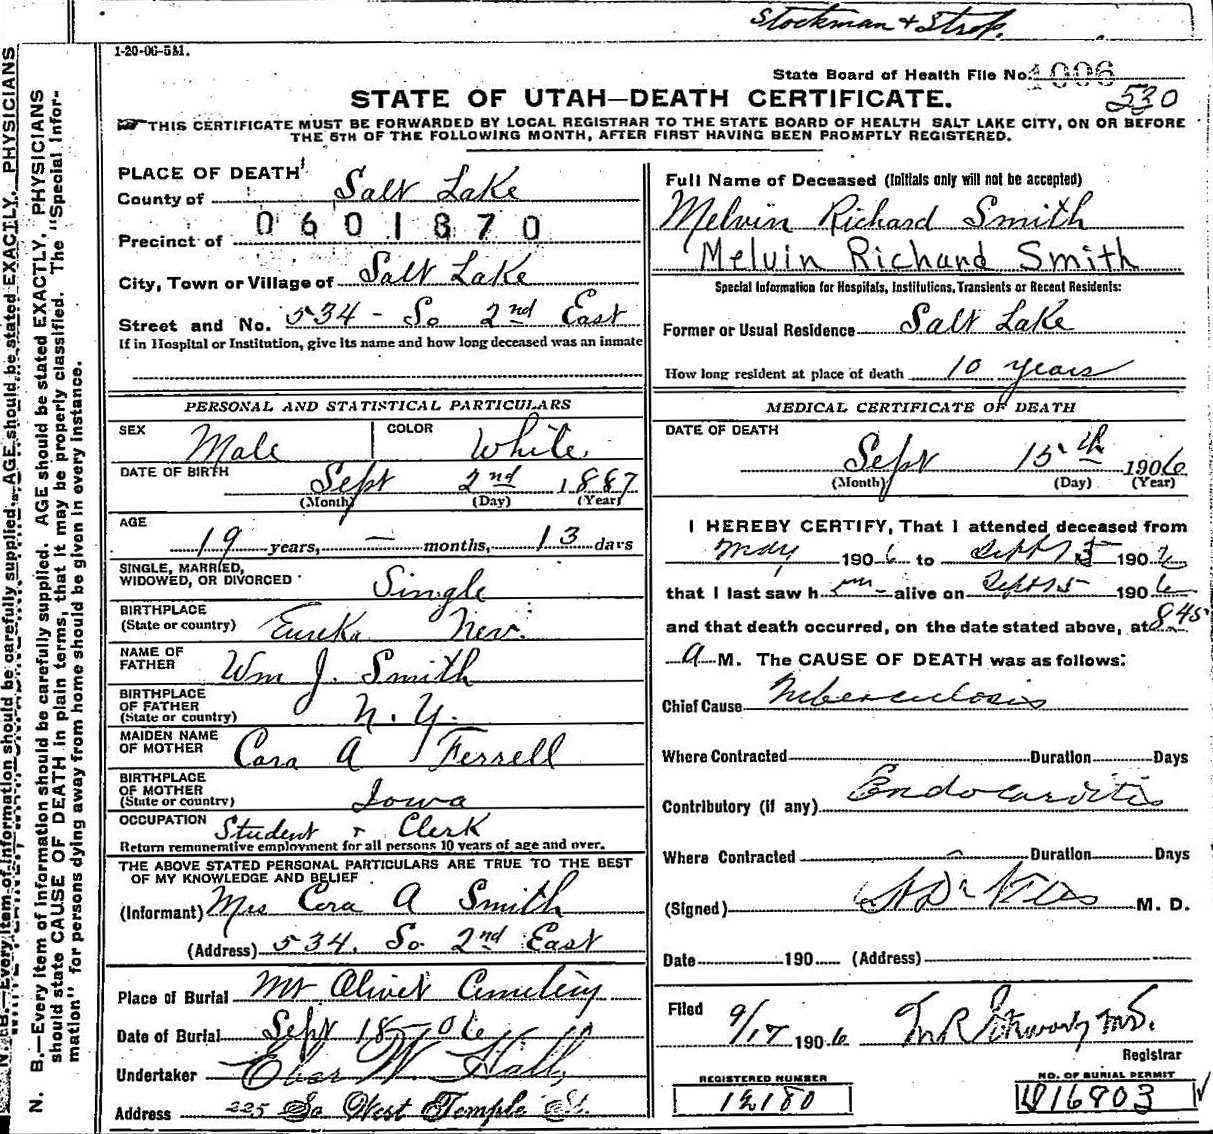 Stockman &
1-20-06-5M.
State Board of Health File No. 1006
530
STATE OF UTAH—DEATH CERTIFICATE.
THIS CERTIFICATE MUST BE FORWARDED BY LOCAL REGISTRAR TO THE STATE BOARD OF HEALTH SALT LAKE CITY, ON OR BEFORE
THE 5TH OF THE FOLLOWING MONTH, AFTER FIRST HAVING BEEN PROMPTLY REGISTERED.
PLACE OF DEATH
County of Salt Lake
0601870
Precinct of
City, Town or Village of Salt Lake
Street and No. 534 - So 2nd East
If in Hospital or Institution, give its name and how long deceased was an inmate
Full Name of Deceased (Initials only will not be accepted)
Melvin Richard Smith
Melvin Richard Smith
Special Information for Hospitals, Institutions, Transients or Recent Residents:
Former or Usual Residence Salt Lake
How long resident at place of death 10 years
PERSONAL AND STATISTICAL PARTICULARS
SEX Male
COLOR White
DATE OF BIRTH Sept 2nd 1887
(Month) (Day) (Year)
AGE 19 years, — months, 13 days
SINGLE, MARRIED,
WIDOWED, OR DIVORCED Single
BIRTHPLACE
(State or country) Eureka Nev.
NAME OF
FATHER Wm J. Smith
BIRTHPLACE
OF FATHER
(State or country) N.Y.
MAIDEN NAME
OF MOTHER Cora A Ferrell
BIRTHPLACE
OF MOTHER
(State or country) Iowa
OCCUPATION Student & Clerk
Return remunerative employment for all persons 10 years of age and over.
THE ABOVE STATED PERSONAL PARTICULARS ARE TRUE TO THE BEST
OF MY KNOWLEDGE AND BELIEF
(Informant) Mrs Cora A Smith
(Address) 534. So 2nd East
Place of Burial Mt Olivet Cemetery
Date of Burial Sept 18 - 06
Undertaker Eber W Hall
Address 225 So West Temple St.
MEDICAL CERTIFICATE OF DEATH
DATE OF DEATH
Sept 15th 1906
(Month) (Day) (Year)
I HEREBY CERTIFY, That I attended deceased from
May 1906 to Sept 15 1906
that I last saw him alive on Sept 15 1906
and that death occurred, on the date stated above, at 8 45
A M. The CAUSE OF DEATH was as follows:
Chief Cause Tuberculosis
Where Contracted Duration Days
Contributory (if any) Endocarditis
Where Contracted Duration Days
(Signed) M. D.
Date 190 (Address)
Filed 9/17 1906 M.D.
Registrar
REGISTERED NUMBER
12180
NO. OF BURIAL PERMIT
16803
N. B.—Every item of information should be carefully supplied. AGE should be stated EXACTLY. PHYSICIANS
N. B.—Every item of information should be carefully supplied. AGE should be stated EXACTLY. PHYSICIANS
should state CAUSE OF DEATH in plain terms, that it may be properly classified. The "Special Infor-
mation" for persons dying away from home should be given in every instance.